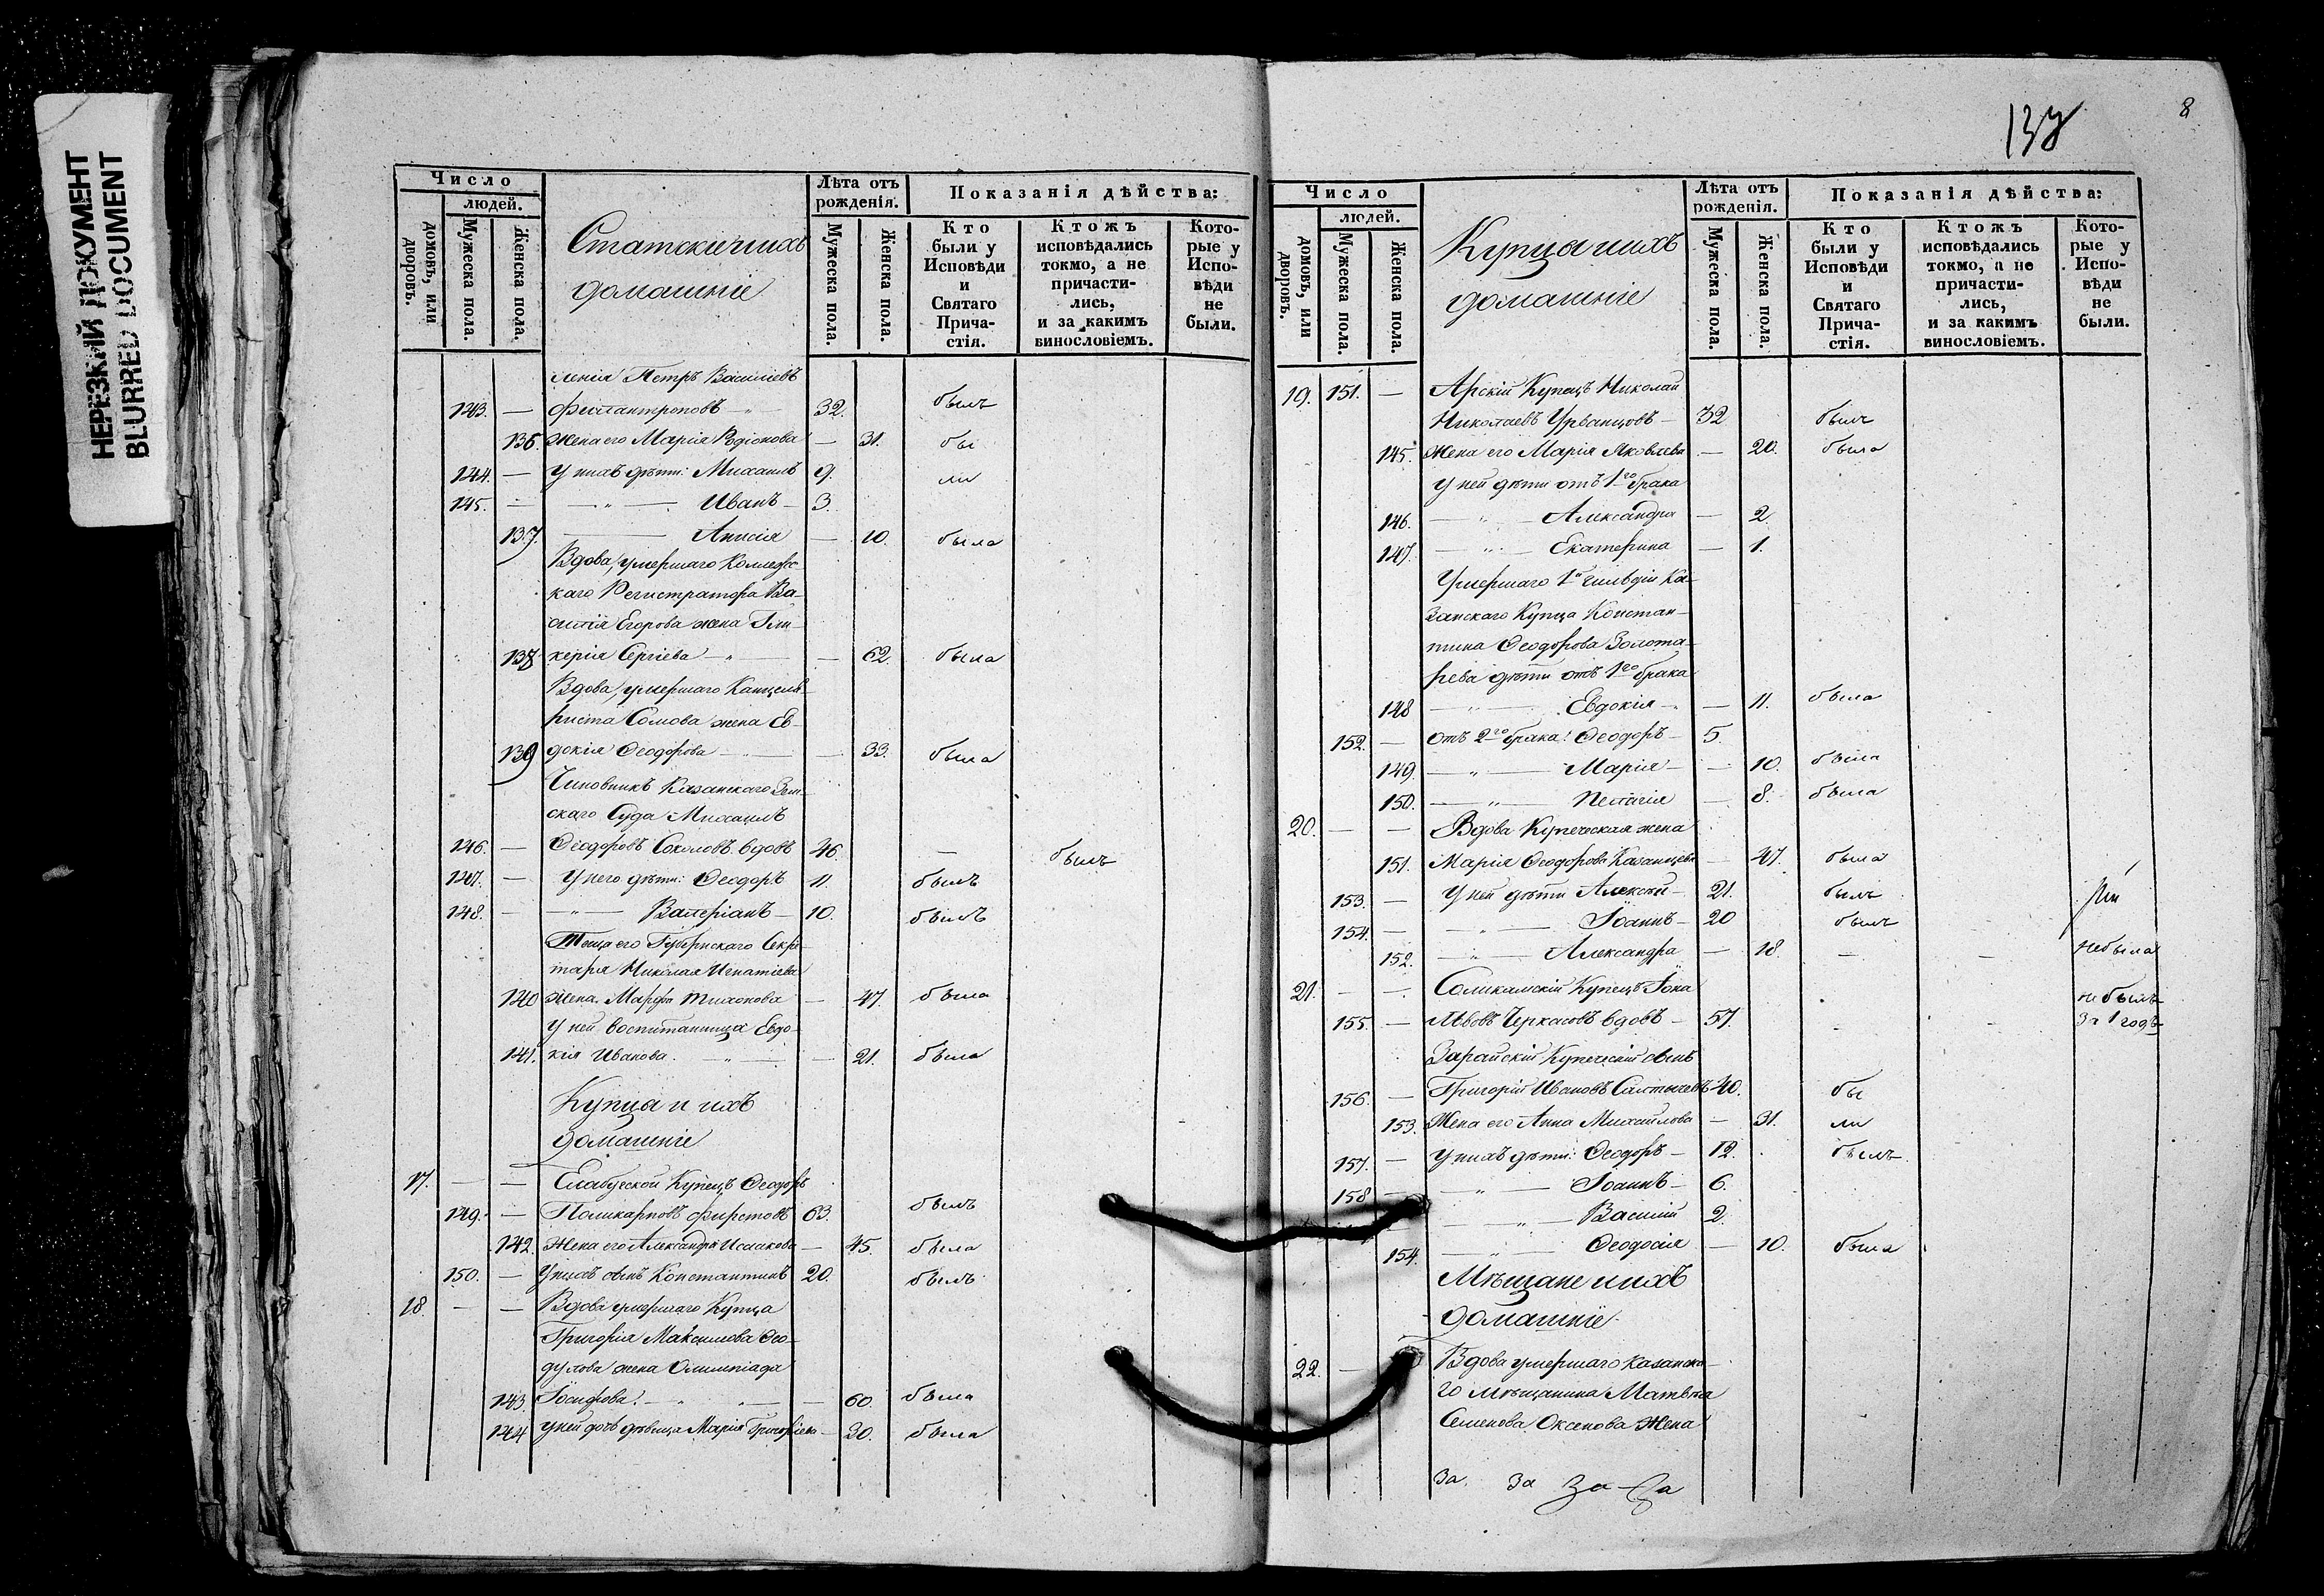 НЕРЕЗКИЙ ДОКУМЕНТ
BLURRED DOCUMENT
Число
людей.
домовъ, или дворовъ.
Мужеска пола.
Женска пола.
Статскіе и ихъ
домашніе
Лѣта отъ рожденія.
Мужеска пола.
Женска пола.
Показанія дѣйства:
Кто были у Исповѣди и Святаго Прича-стія.
Ктожъ исповѣдались токмо, а не причасти-лись, и за какимъ винословіемъ.
Кото-рые у Испо-вѣди не были.
ленія Петръ Василіевъ
143. — Филантроповъ — 32. былъ
136. Жена его Марія Родіонова — 31. бы
144. — У нихъ дѣти: Михаилъ 9. ли
145. — — Иванъ — 3.
137. — Анисія — 10. была
Вдова, умершаго Коллежс-
каго Регистратора Ва-
силія Егорова жена Гли-
138 керія Сергіева — — 62. была
Вдова, умершаго Канцеля-
риста Сомова жена Ев-
139 докія Ѳеодорова — — 33. была
Чиновникъ Казанскаго Зем-
скаго Суда Михаилъ
146. — Ѳеодоровъ Соколовъ вдовъ 46. — былъ
147. — У него дѣти: Ѳеодоръ 11. былъ
148. — — Валеріанъ — 10. былъ
Теща его Губернскаго Секре-
таря Николая Игнатіева
140 жена Марфа Тихонова — 47. была
У ней воспитанница Евдо-
141. кія Иванова. — — 21. была
Купцы и ихъ
домашніе
17. — — Елабугской Купецъ Ѳеодоръ
149. — Поликарповъ Фирстовъ 63. былъ
142. Жена его Александра Исаакова — 45. была
150. — У нихъ сынъ Константинъ 20. былъ
18. — — Вдова умершаго Купца
Григорія Максимова Ѳео-
дулова жена Олимпіада
143. Іосифова. — — 60. была
144 У ней дочь дѣвица Марія Григоріева — 30. была
137
8
Число
людей.
домовъ, или дворовъ.
Мужеска пола.
Женска пола.
Купцы и ихъ
домашніе
Лѣта отъ рожденія.
Мужеска пола.
Женска пола.
Показанія дѣйства:
Кто были у Исповѣди и Святаго Прича-стія.
Ктожъ исповѣдались токмо, а не причасти-лись, и за какимъ винословіемъ.
Кото-рые у Испо-вѣди не были.
19. 151. — Арскій Купецъ Николай
Николаевъ Урванцовъ — 32 былъ
145. Жена его Марія Яковлева — 20. была
У ней дѣти отъ 1го брака
146. — Александра — 2.
147. — Екатерина — 1.
Умершаго 1й гильдіи Ка-
занскаго Купца Констан-
тина Ѳеодорова Золота-
рева дѣти отъ 1го брака
148 — Евдокія — — 11. была
152. — отъ 2го брака: Ѳеодоръ — 5.
149. — Марія — — 10. была
150. — Пелагія — 8. была
20. — — Вдова Купеческая жена
151. Марія Ѳеодорова Казанцева — 47. была
153. — У ней дѣти Алексѣй — 21. былъ
154. — — Іоаннъ — 20 былъ
152. — Александра — 18. — — не была
21. — — Соликамскій Купецъ Іона не былъ
155. — Львовъ Черкасовъ вдовъ — 57. за 1 годъ
Зарайскій Купеческій сынъ
156. — Григорій Ивановъ Салтычевъ 40. бы
153. Жена его Анна Михайлова — 31. ли
157. — У нихъ дѣти: Ѳеодоръ — 12. былъ
158 — — Іоаннъ — 6.
— Василій 2.
154. — Ѳеодосія — 10. была
Мѣщане и ихъ
домашніе
22. — Вдова умершаго Казанска-
го мѣщанина Матвѣя
Семенова Оксенова жена
За За За За